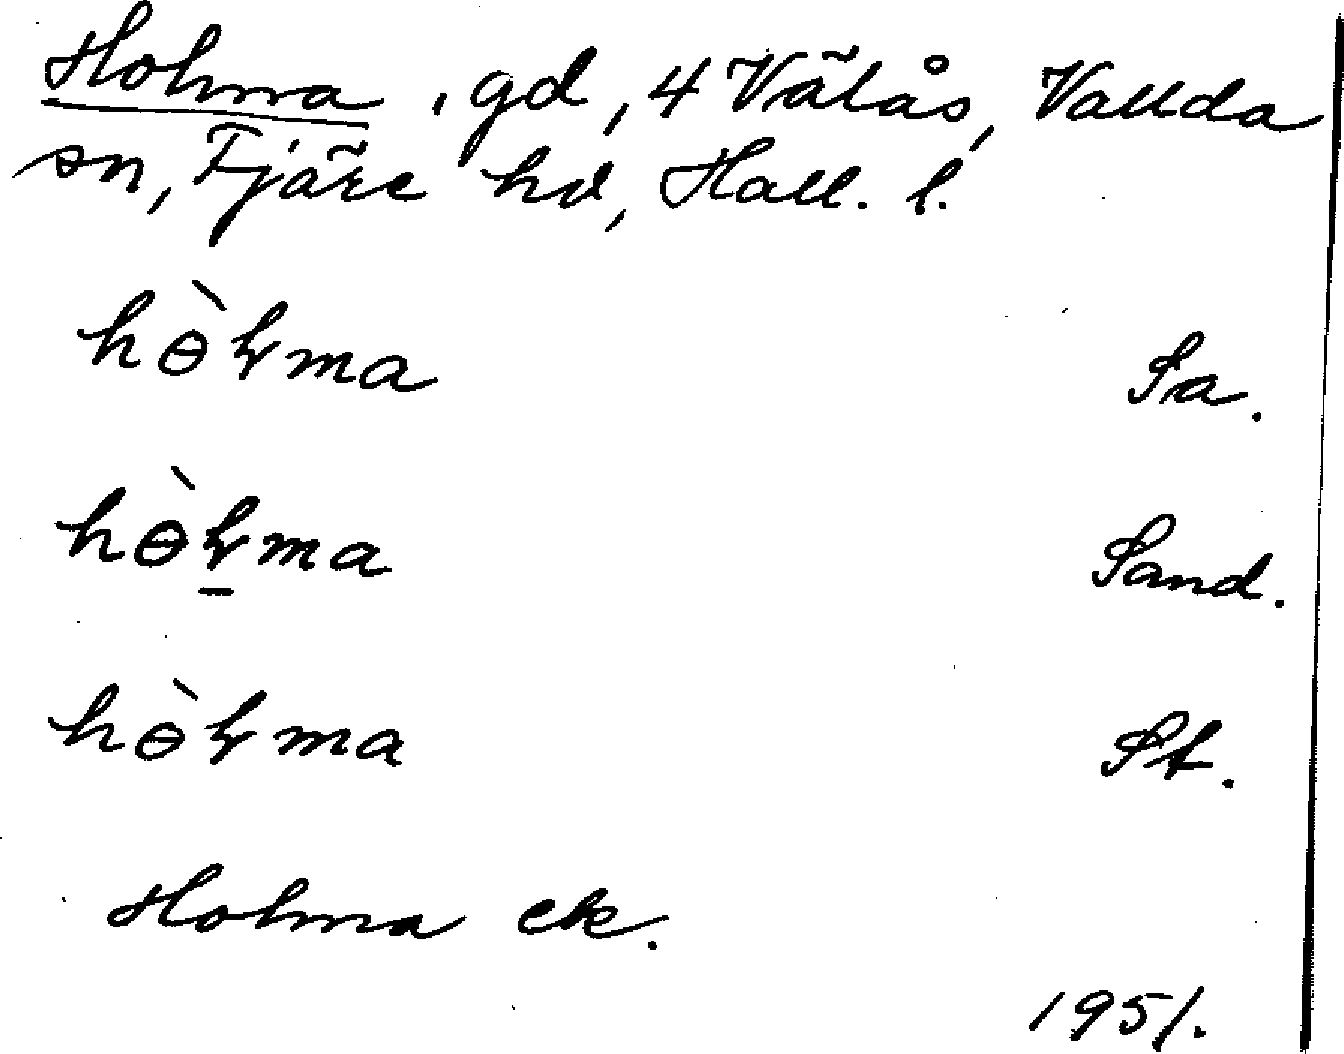 Holma, gd, 4 Välås, Vallda
sn, Fjäre hd, Hall. l.
hɵ̀ɫma Sa.
hɵ̀ɫ̠ma Sand.
hɵ̀ɫma St.
Holma ek.
1951.